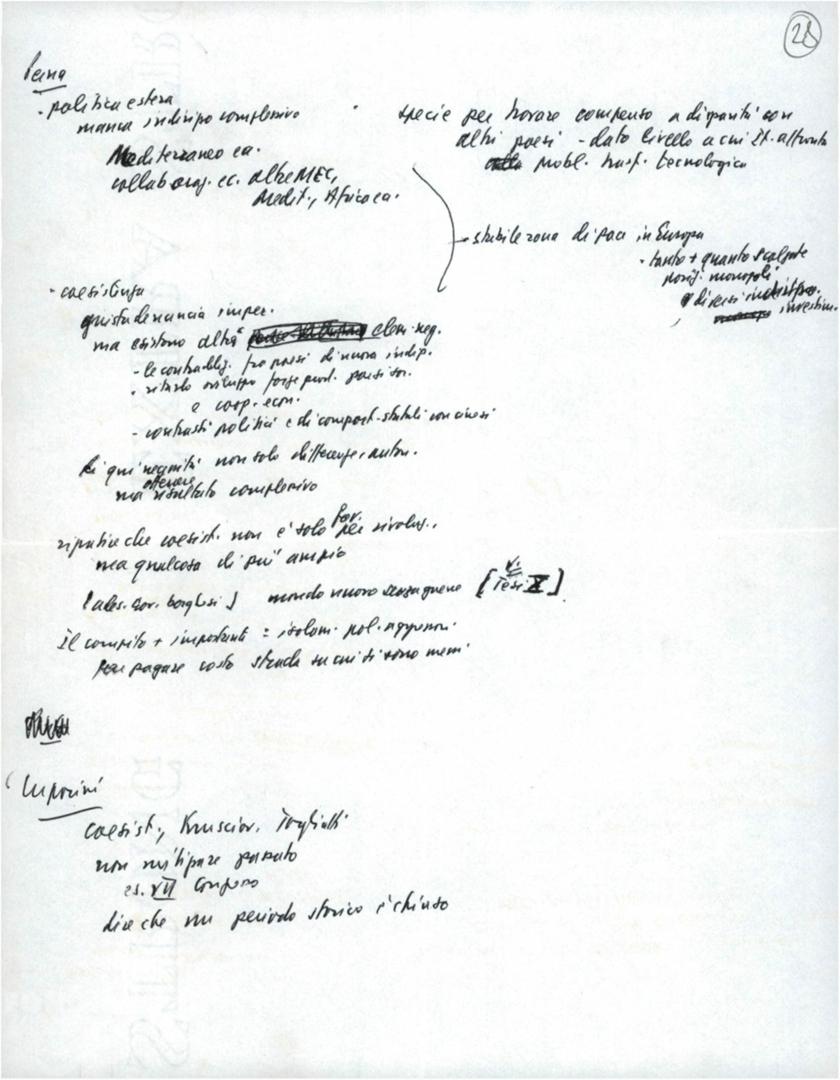 28
- politica estera
manca indirizzo complessivo
Mediterraneo ecc.
collaboraz. ec. oltre MEC,
Medit., Africa ecc.
specie per trovare compenso a disparità con
altri paesi - dato livello a cui It. affronta
probl. trasf. tecnologica
- stabile zona di pace in Europa
- tanto + quanto scalzate
posiz. monopoli
investim.
- coesistenza
giusta denuncia imper.
ma esistono altri elem. neg.
- le contraddiz. fra paesi di nuova indip.
- ritardo sviluppo forze prod. paesi soc.
e coop. econ.
- contrasti politici e di comport. statali con cinesi
Di qui necessità non solo differenze, auton.
ma ottenere risultato complessivo
ripetere che coesist. non è solo fav. per rivoluz.,
ma qualcosa di più ampio
mondo nuovo senza guerre [v. Tesi X]
Il compito + importante = isolam. pol. aggressori
Far pagare costo strada su cui si sono messi
Luporini
coesist., Krusciov, Togliatti
non mitizzare passato
es. VII Congresso
dire che un periodo storico è chiuso